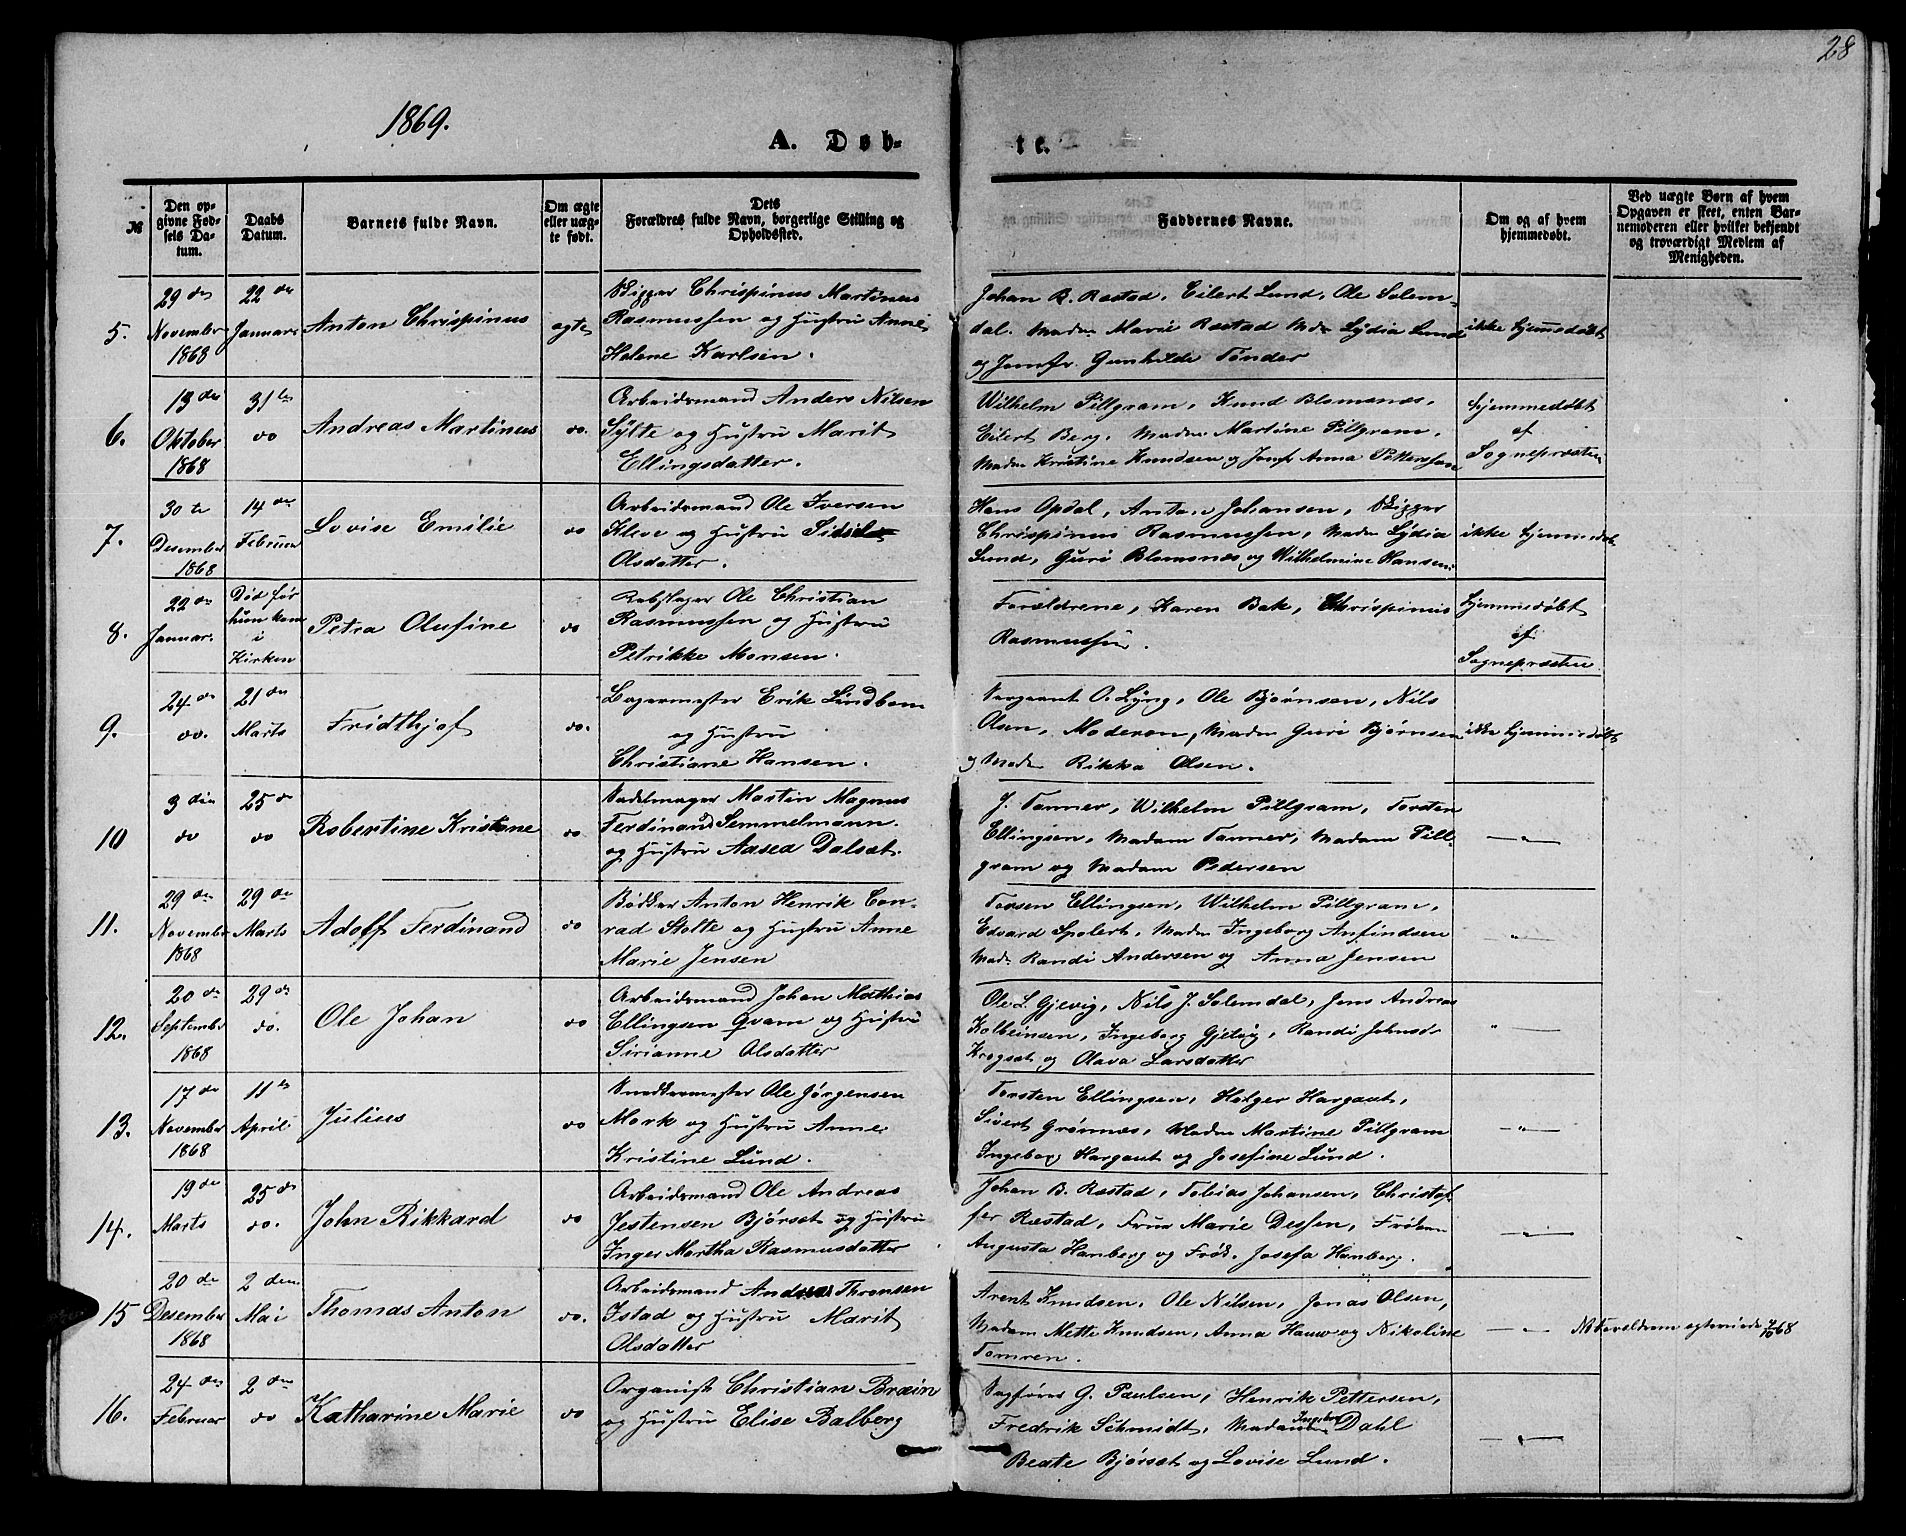 28
1869.
A. Døb-
te.
№
Den opgivne Fødsels Datum.
Daabs Datum.
Barnets fulde Navn.
Om ægte eller uægte født.
Dets Forældres fulde Navn, borgerlige Stilling og Opholdssted.
Faddernes Navne.
Om og af hvem hjemmedøbt.
Ved uægte Børn af hvem Opgaven er skeet, enten Barnemoderen eller hvilket bekjendt og troværdigt Medlem af Menigheden.
5.
29 de November 1868
22 de Januar
Anton Chrispinus
ægte
Skipper Chrispinus Martinus
Rasmussen og Hustru Anne
Helene Karlsen.
Johan B. Ræstad, Eilert Lund, Ole Solem-
dal. Madm Marie Ræstad Mdm Lydia Lund
og Jomfr. Gunhilde Tønder
ikke hjemmedøbt
6.
13 de Oktober 1868
31 te do
Andreas Martinus
do.
Arbeidsmand Anders Nilsen
Sylte og Hustru Marit
Ellingsdatter.
Wilhelm Pillgram, Knud Blomsnæs,
Eilert Berg. Madm Martine Pillgram.
Madm Kristine Knudsen og Jomfr Anna Pettersen
hjemmedøbt
af
Sognepræsten
7.
30 te Desember 1868
14 de Februar
Lovise Emilie
do
Arbeidsmand Ole Iversen
Kleve og Hustru
Olsdatter.
Hans Opdal, Anton Johansen, Skipper
Chrispinus Rasmussen, Madm Lydia
Lund, Guri Blomsnæs og Wilhelmine Hansen.
ikke hjemmedøbt
8.
22 de Januar.
Død før hun kom i Kirken
Petra Olufine
do
Rebslager Ole Christian
Rasmussen og Hustru
Petrikke Monsen.
Forældrene, Karen Bak, Chrispinus
Rasmussen.
hjemmedøbt
af
Sognepræsten.
9.
24 de do.
21 de Marts
Fridthjof
do.
Bagermester Erik Lindbom
og Hustru
Christiane Hansen.
Sergeant O. Lyng, Ole Bjørnsen, Nils
Olsen, Moderen, Madm Guri Bjørnsen
og Madm Rikka Olsen.
ikke hjemmedøbt
10
3 die do
25 de do
Robertine Kristine
do
Sadelmager Martin Magnus
Ferdinand Semmelmann.
og Hustru Aasea Dalset.
J. Tanner, Wilhelm Pillgram, Torsten
Ellingsen, Madam Tanner, Madam Pill-
gram og Madam Pedersen
—〃—
11.
29 de November 1868
29 de Marts
Adolf Ferdinand
do
Bødker Anton Henrik Con-
rad Stolte og Hustru Anne
Marie Jensen
Torsen Ellingsen, Wilhelm Pillgram,
Edvard Spolert, Madm Ingeborg Anfindsen
Madm Randi Andersen og Anna Jensen
—〃—
12.
20 de September 1868
29 de do.
Ole Johan
do
Arbeidsmand Johan Mathias
Ellingsen Qvam og Hustru
Sirianne Olsdatter
Ole L. Gjevig, Nils J. Solemdal, Jens Andreas
Kolbeinsen, Ingeborg Gjevig, Randi Johnsdr
Krogset og Olava Larsdatter
〃—
13.
17 de November 1868
11 te April
Julius
do
Snedkermester Ole Jørgensen
Mork og Hustru Anne
Kristine Lund.
Torsten Ellingsen, Holger Hargaut,
Sivert Grønnæs, Madm Martine Pillgram
Ingeborg Hargaut og Josefine Lund.
—〃—
14.
19 de Marts
25 de do.
John Rikkard
do
Arbeidsmand Ole Andreas
Jestensen Bjørset og Hustru
Inger Martha Rasmusdatter
Johan B. Ræstad, Tobias Johansen, Christof-
fer Ræstad, Frue Marie Dessen, Frøken
Augusta Hanberg og Frøk. Josefa Hanberg.
—〃—
15
20 de Desember 1868
2 den Mai
Thomas Anton
do.
Arbeidsmand Andreas Thronsen
Istad og Hustru Marit
Olsdatter
Arent Knudsen, Ole Nilsen, Jonas Olsen,
Madam Mette Knudsen, Anna Hauw og Nikoline
Tomren.
—〃—
16.
24 de Februar
2 den do
Katharine Marie
do
Organist Christian Bræin
og Hustru Elise Balberg
Sagfører G. Paulsen, Henrik Pettersen,
Fredrik Schmidt, Madam Ingeborg Dahl
Beate Bjørset og Lovise Lund.
—〃—